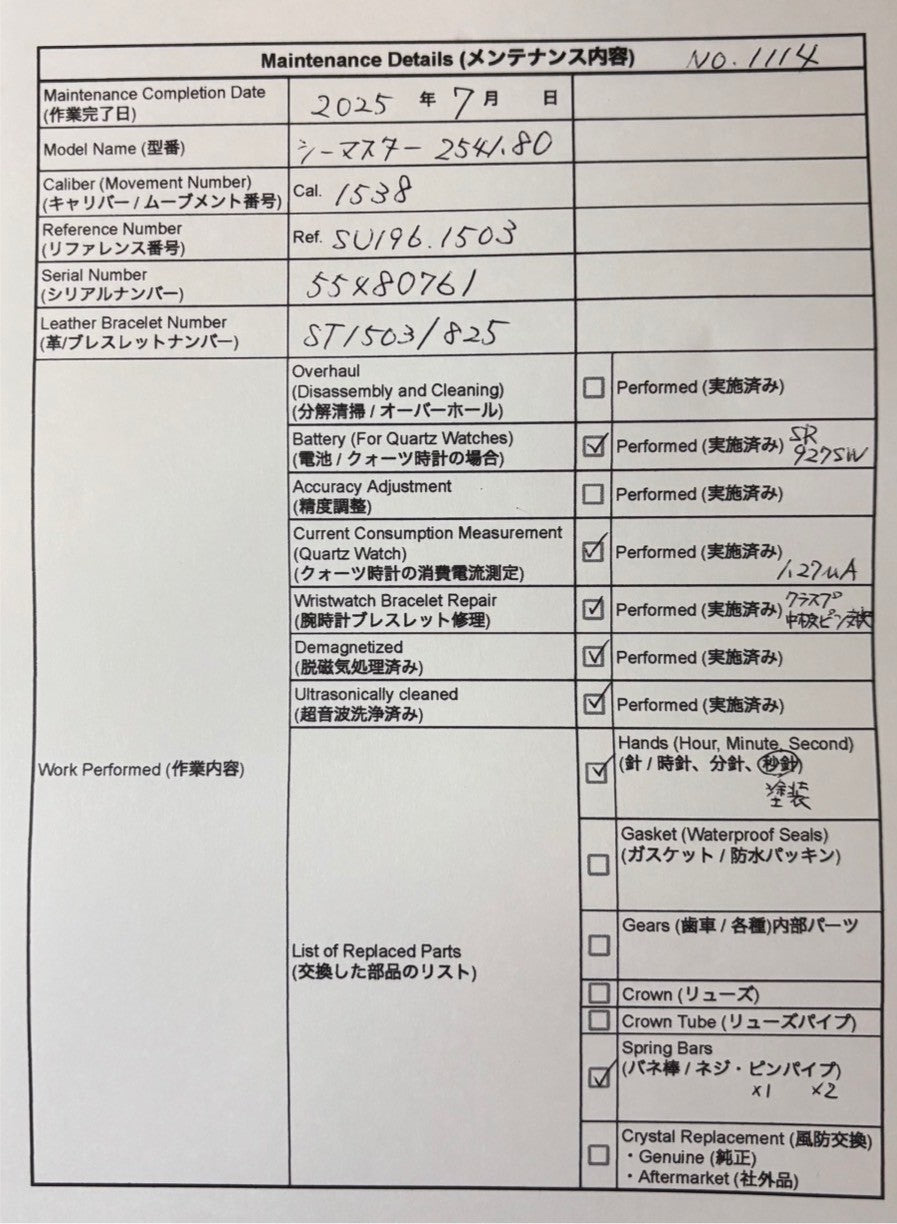 Maintenance Details (メンテナンス内容) NO. 1114
Maintenance Completion Date
(作業完了日)
2025 年 7 月 日
Model Name (型番)
シーマスター 2541.80
Caliber (Movement Number)
(キャリバー / ムーブメント番号)
Cal. 1538
Reference Number
(リファレンス番号)
Ref. SU196.1503
Serial Number
(シリアルナンバー)
55480761
Leather Bracelet Number
(革/ブレスレットナンバー)
ST1503/825
Work Performed (作業内容)
Overhaul
(Disassembly and Cleaning)
(分解清掃 / オーバーホール)
Performed (実施済み)
Battery (For Quartz Watches)
(電池 / クォーツ時計の場合)
Performed (実施済み) SR
927SW
Accuracy Adjustment
(精度調整)
Performed (実施済み)
Current Consumption Measurement
(Quartz Watch)
(クォーツ時計の消費電流測定)
Performed (実施済み)
1.27μA
Wristwatch Bracelet Repair
(腕時計ブレスレット修理)
Performed (実施済み) クラスプ
中板ピン交換
Demagnetized
(脱磁気処理済み)
Performed (実施済み)
Ultrasonically cleaned
(超音波洗浄済み)
Performed (実施済み)
List of Replaced Parts
(交換した部品のリスト)
Hands (Hour, Minute, Second)
(針 / 時針、分針、秒針)
塗装
Gasket (Waterproof Seals)
(ガスケット / 防水パッキン)
Gears (歯車 / 各種)内部パーツ
Crown (リューズ)
Crown Tube (リューズパイプ)
Spring Bars
(バネ棒 / ネジ・ピンパイプ)
×1 ×2
Crystal Replacement (風防交換)
・Genuine (純正)
・Aftermarket (社外品)